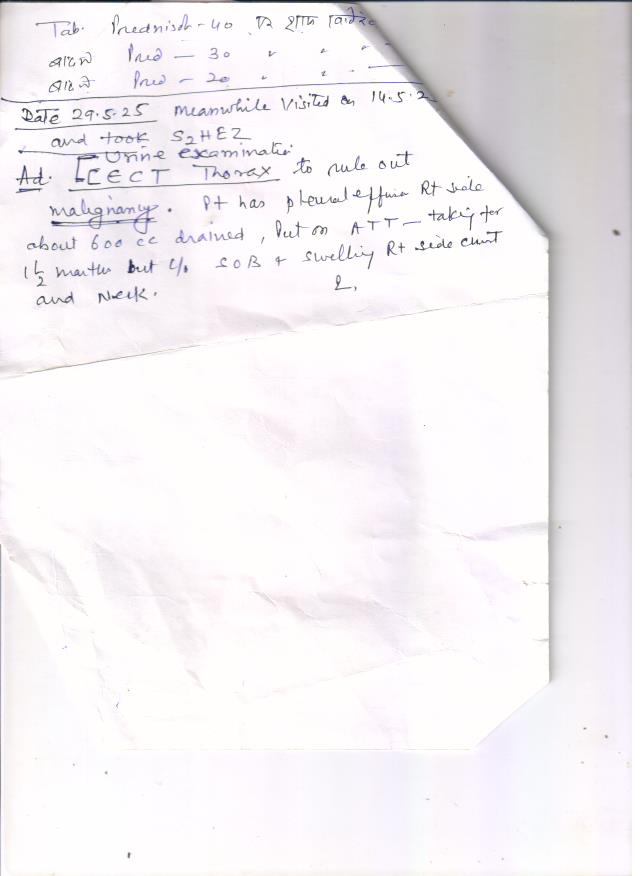 Tab. Prednisol - 40
Pred - 30 " " "
Pred - 20 " " "
Date 29.5.25 Meanwhile visited on 14.5.2
and took S₂HEZ
Urine examination
Ad. CECT Thorax to rule out
malignancy. Pt has pleural effusion Rt side
about 600 cc drained, Put on ATT - taking for
1 1/2 months but c/o SOB + swelling Rt side chest
and Neck.